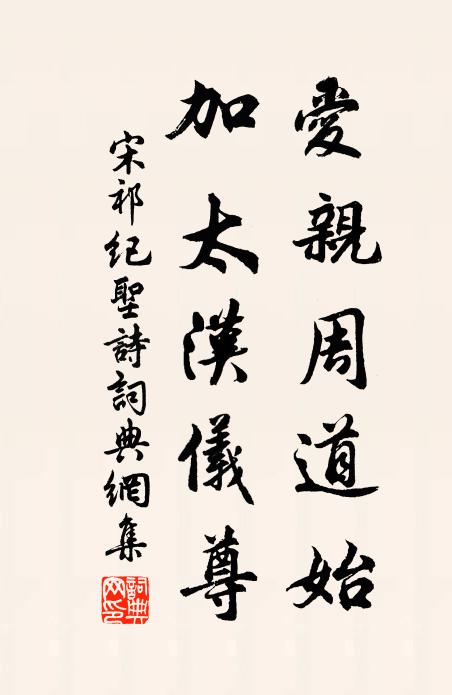 愛親周道始
加太漢儀尊
宋祁紀聖詩詞典網集
詞典網印